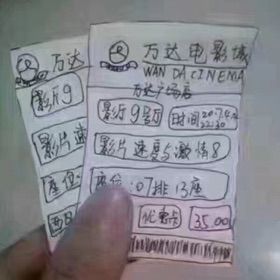 万达电影城
WAN DA CINEMA
万达广场店
影厅 9号厅
时间 20-7.4.2
22:30
影片 速度与激情8
座位:07排13座
优惠卡 35.00
万达
影厅9
影片 速
座位: